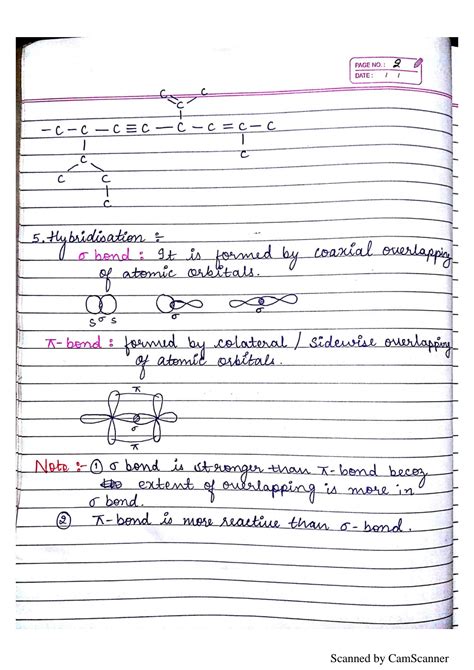 PAGE NO.: 2
DATE: / /
C C
C
- C - C - C ≡ C - C - C = C - C
C C
C C
C
5. Hybridisation :-
σ bond : It is formed by coaxial overlapping
of atomic orbitals.
S σ S σ σ
π-bond : formed by colateral / Sidewise overlapping
of atomic orbitals.
π
σ
π
Note :- ① σ bond is stronger than π-bond becoz
extent of overlapping is more in
σ bond.
② π-bond is more reactive than σ-bond.
Scanned by CamScanner